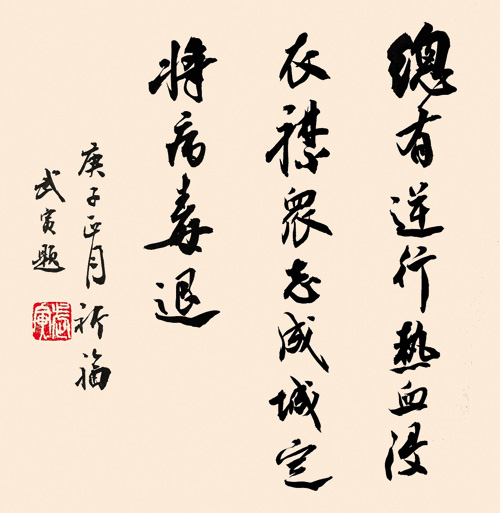 總有逆行熱血浸
衣襟眾志成城定
將病毒退
庚子正月祈福
武寅題